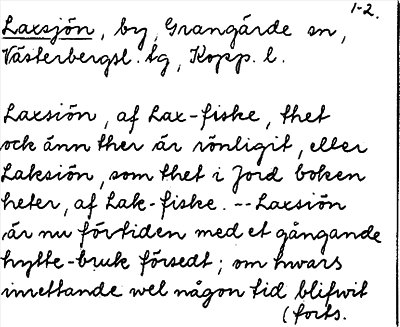 1-2.
Laxsjön, by, Grangärde sn,
Västerbergsl. tg, Kopp. l.
Laxsiön, af Lax-fiske, thet
ock änn ther är rönligit, eller
Laksiön, som thet i Jord boken
heter, af Lak-fiske. -- Laxsiön
är nu förtiden med et gångande
hytte-bruk försedt; om hwars
inrettande wel någon tid blifwit
(forts.